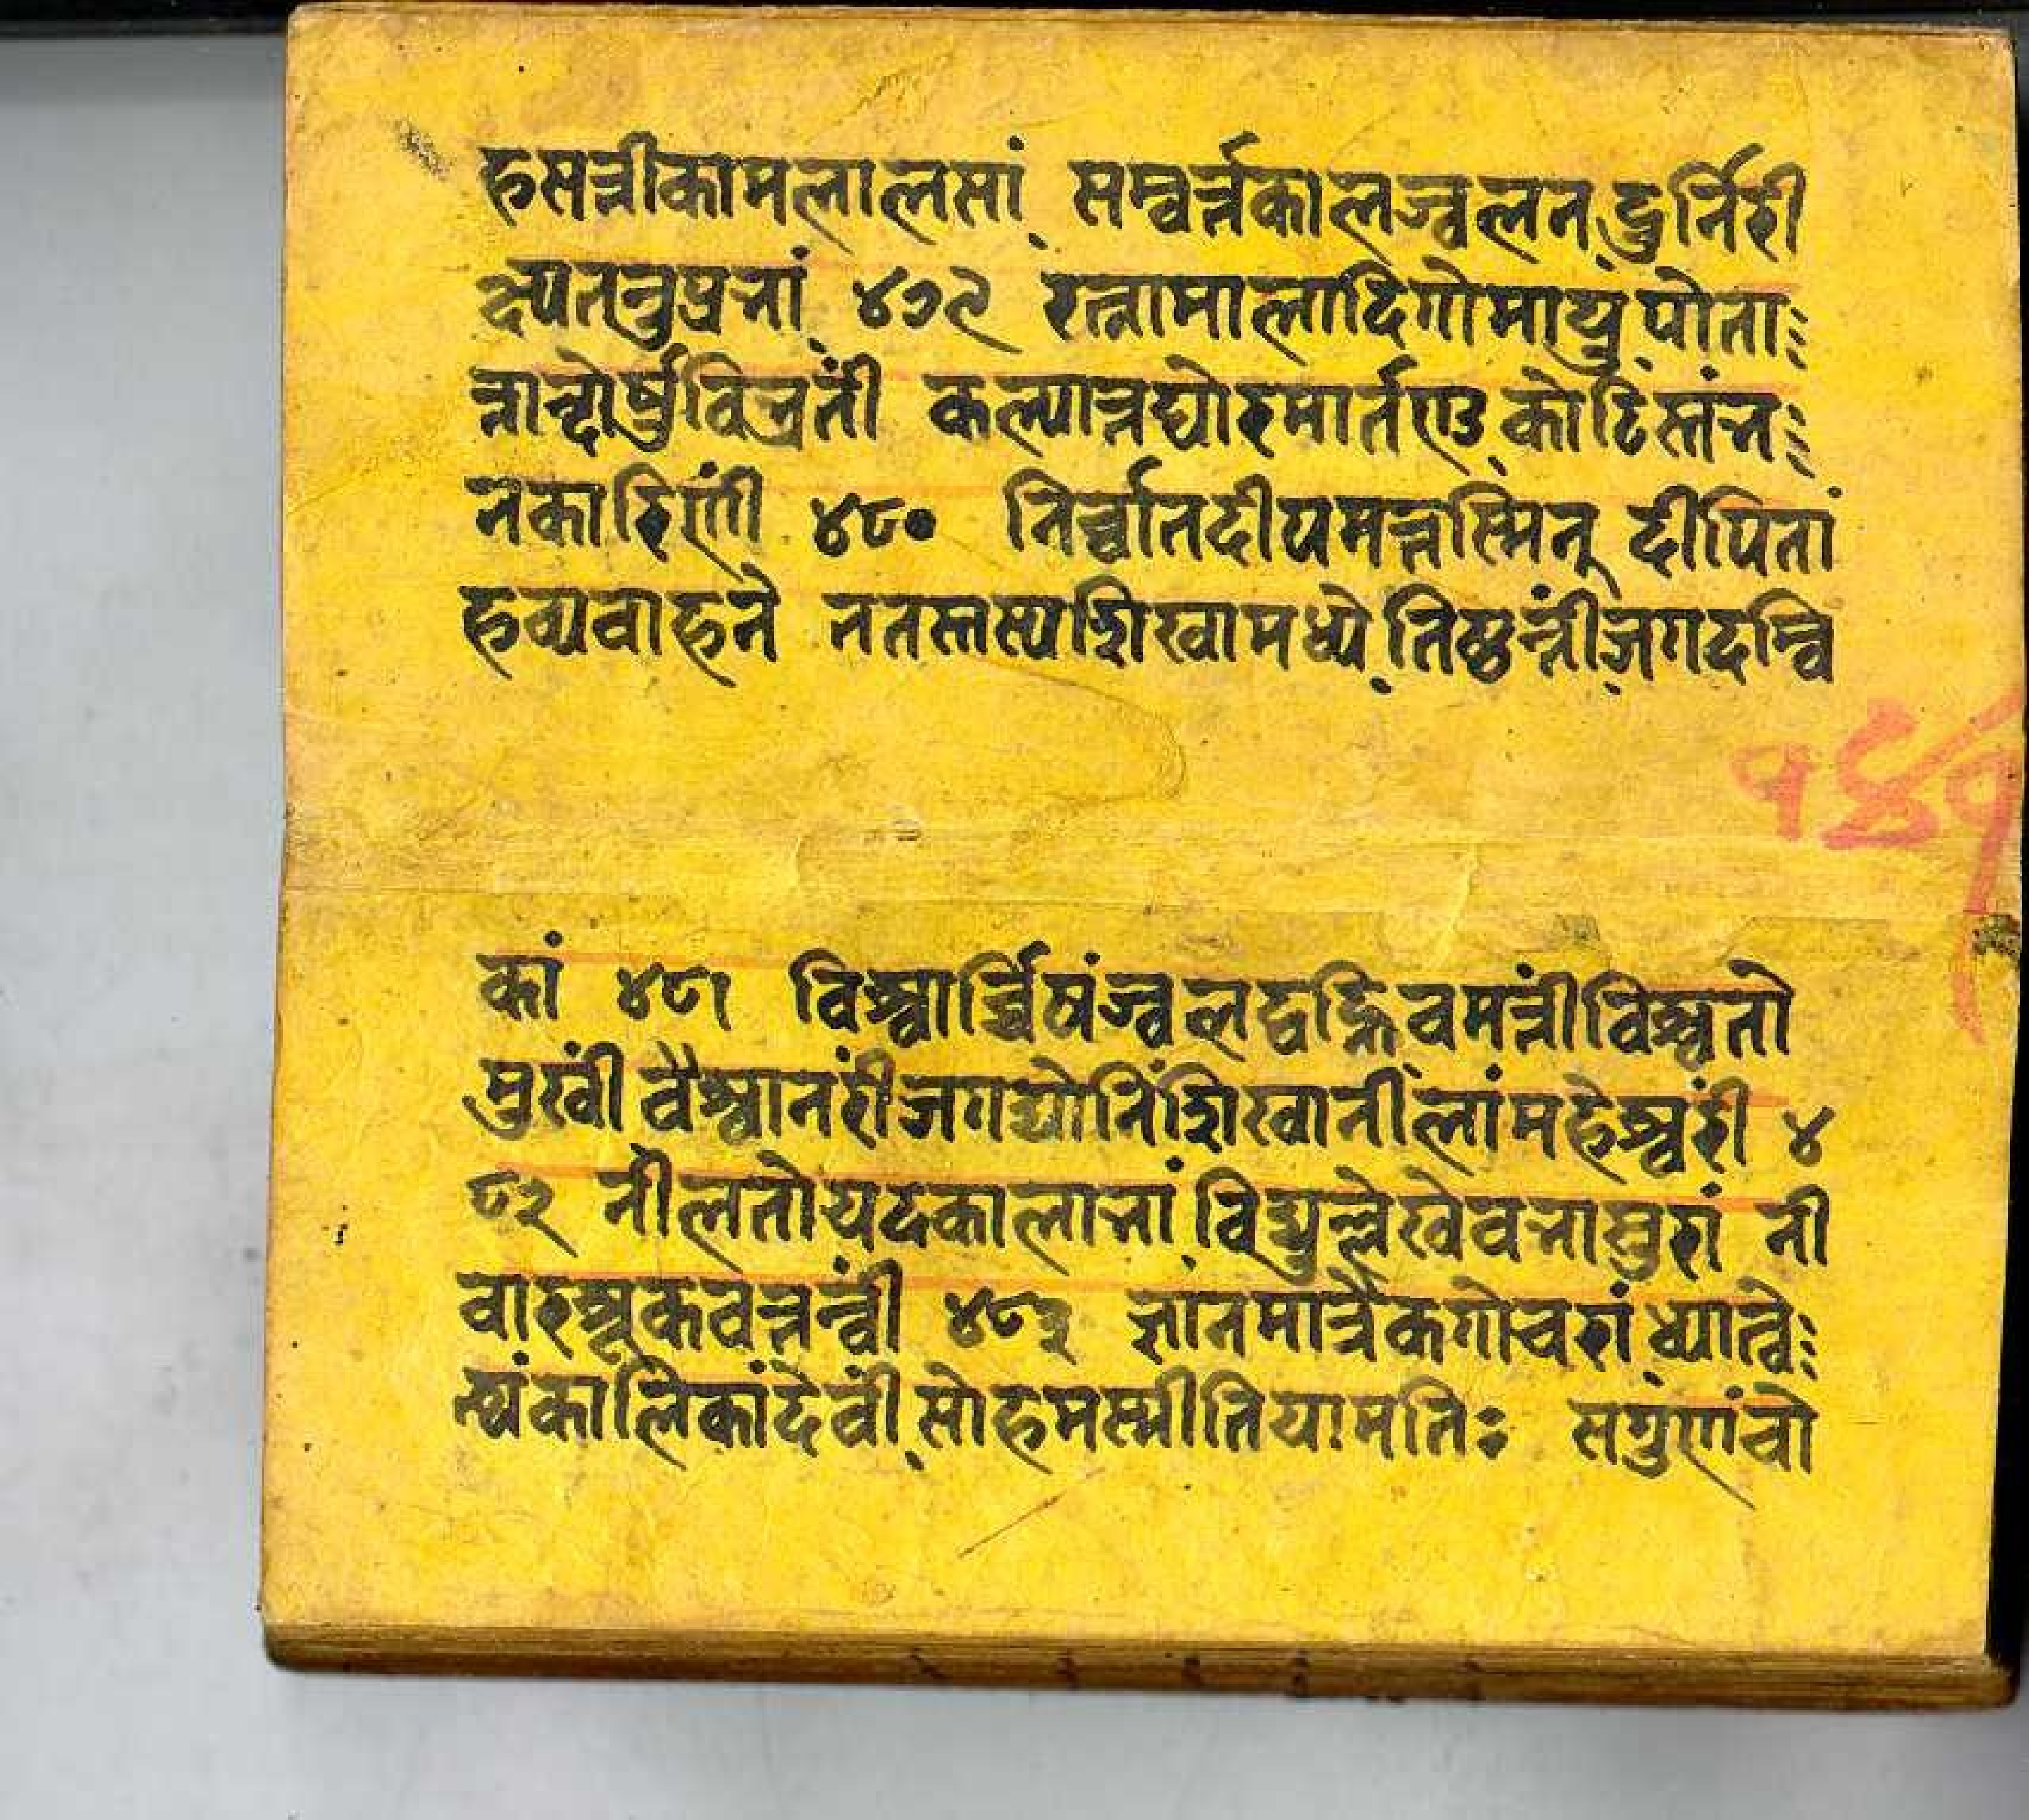 हसन्तीकामलालसां सम्वर्त्तकालज्वलन दुर्निरी
क्ष्यतनुप्रभां ४७९ रत्नामालादिगोमायु पोता
न्नान्दोर्षुविभ्रतीं कल्पान्तद्योरमार्तण्ड कोटिस्तंभ
नकारिणीं ४८० निर्व्वातदीपमन्नस्मिन् दीपितां
हव्यवाहने ततस्तस्यशिखामध्ये तिष्ठन्तींजगदम्वि
१४१
कां ४८१ विश्वार्च्चिषंज्वलद्वह्निवमन्तींविश्वतो
मुखीं वैश्वानरींजगद्योनिंशिखानीलांमहेश्वरीं ४
८२ नीलतोयदकालाभां विद्युल्लेखेवभासुरां नी
वारशूकवत्तन्वीं ४८३ ज्ञानमात्रैकगोचरां ध्यात्वे
त्थंकालिकांदेवीं सोहमस्मीतियामतिः सगुणंचो